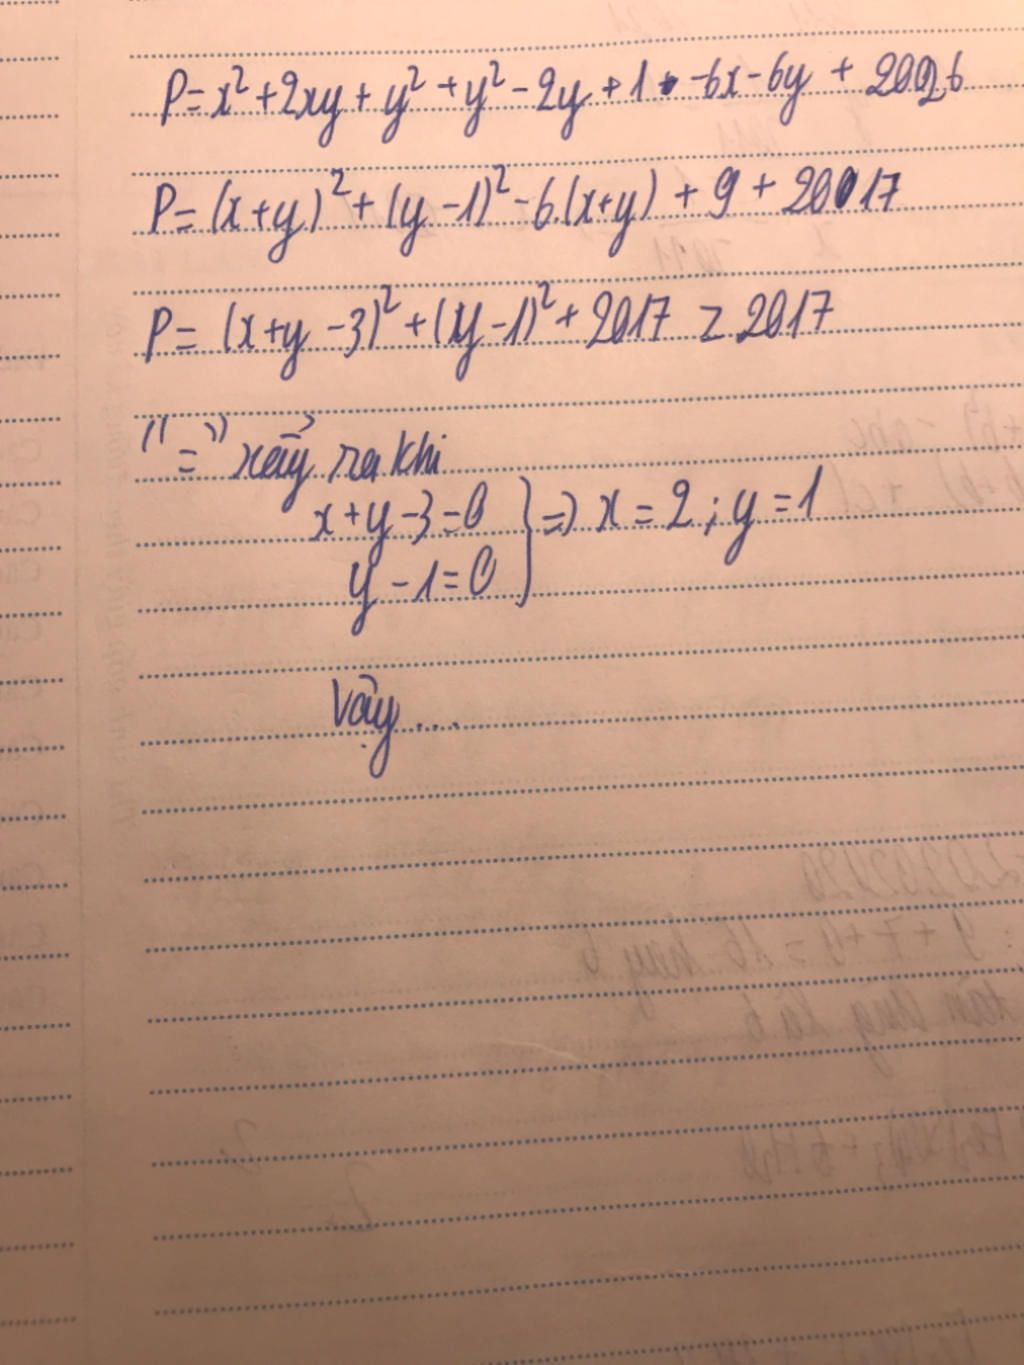 P=x²+2xy+y²+y²-2y+1-6x-6y+2026
P=(x+y)²+(y-1)²-6.(x+y)+9+2017
P=(x+y-3)²+(y-1)²+2017≥2017
"=" xảy ra khi
x+y-3=0
y-1=0 } => x=2; y=1
Vậy....